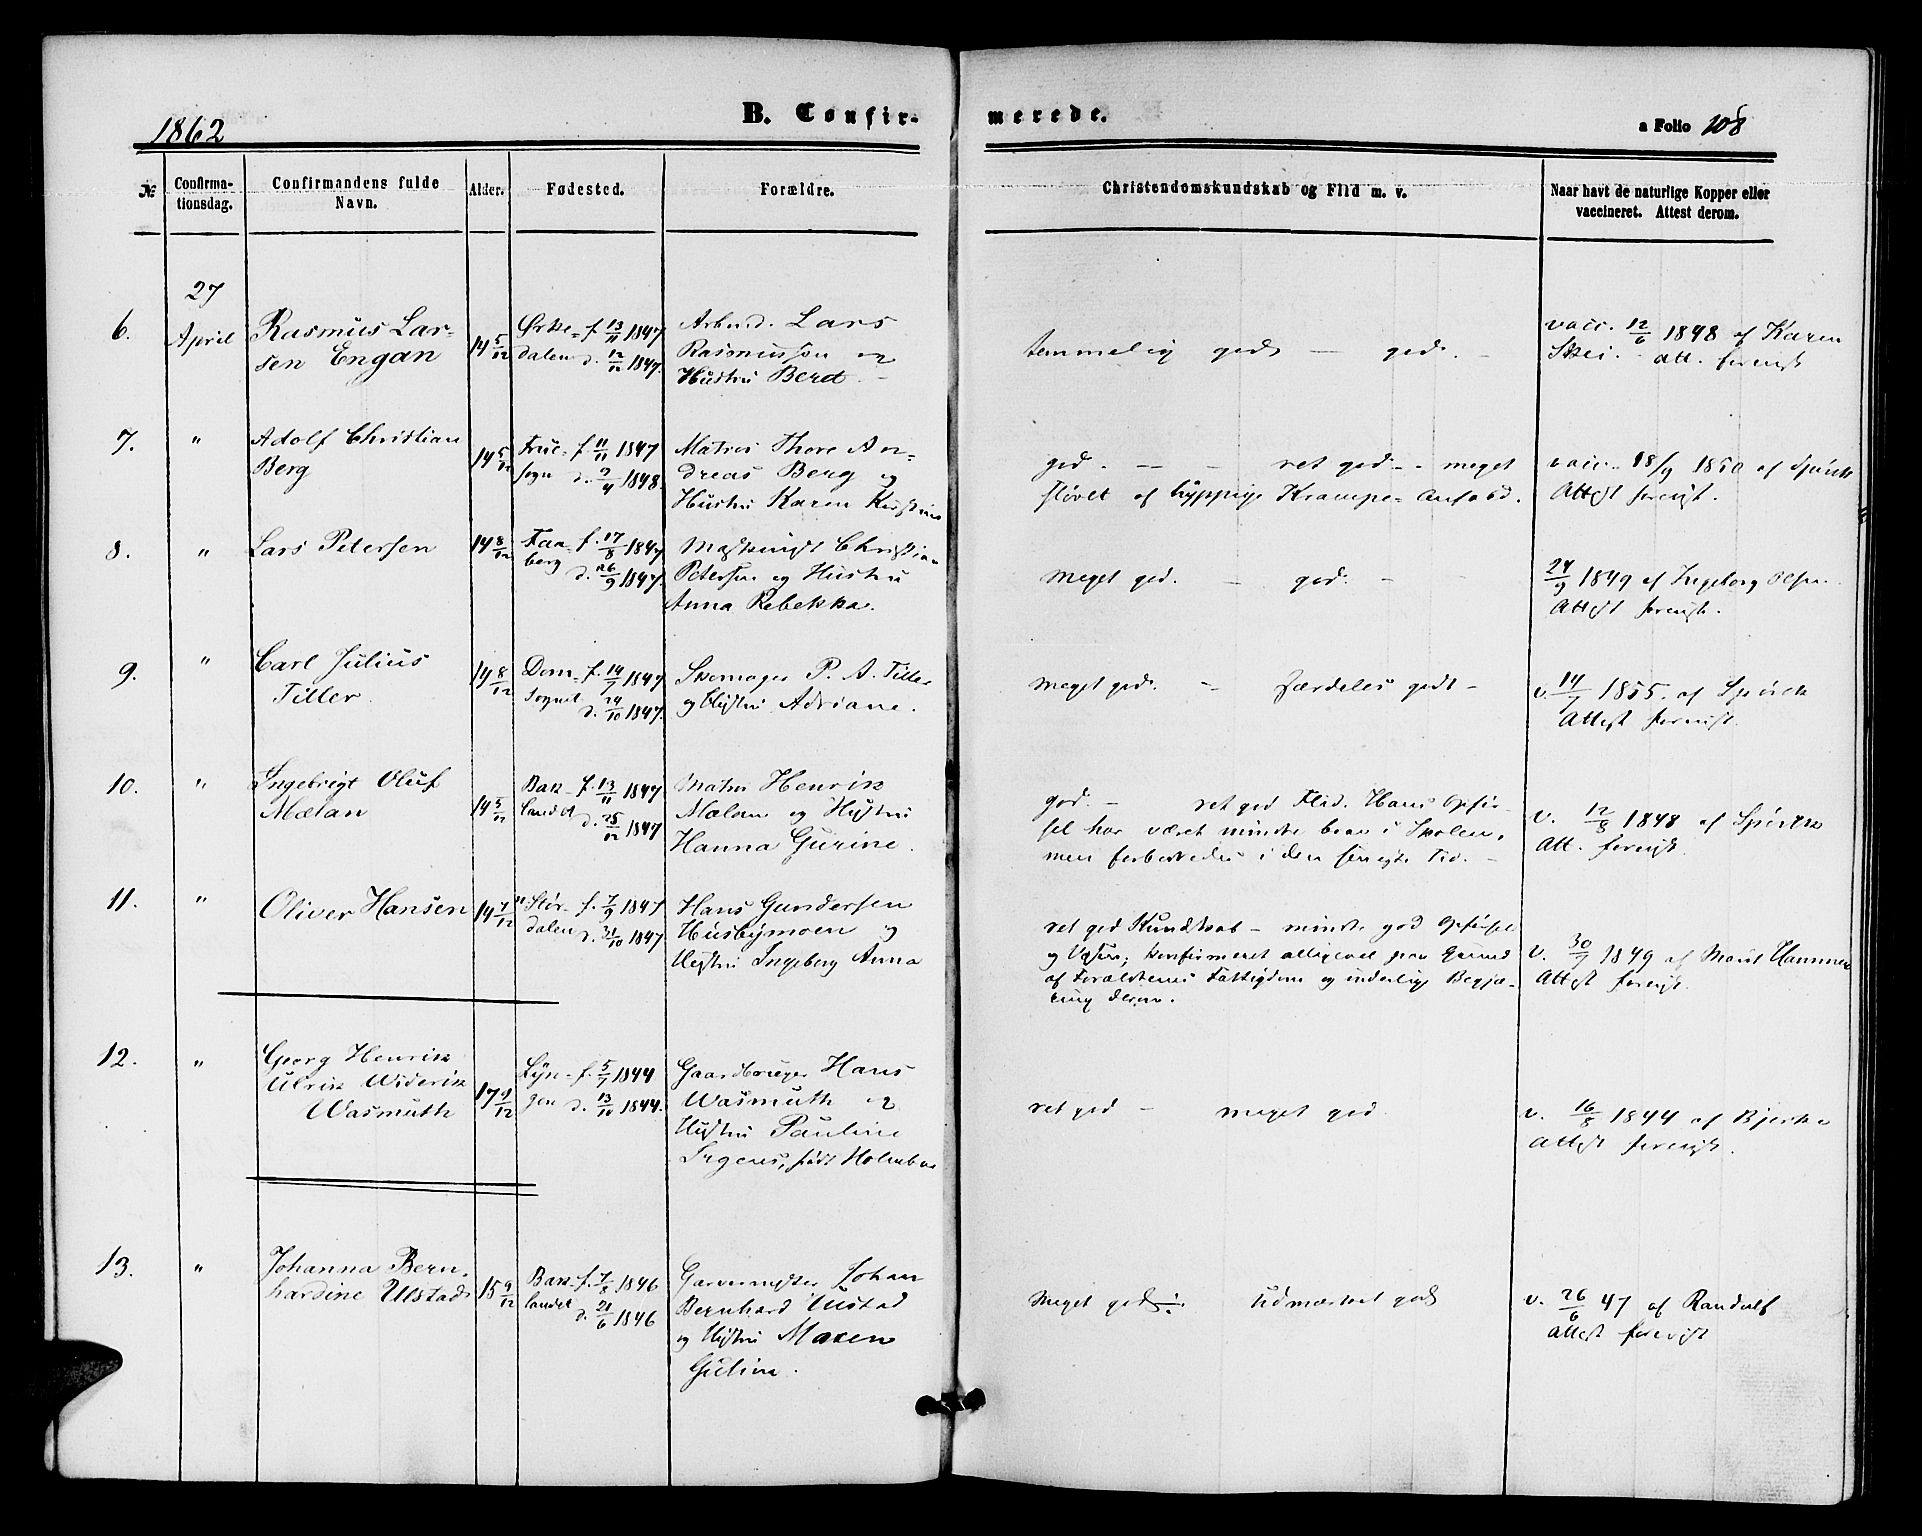 1862
B. Confir-
merede.
a Folio 108
№
Confirma-
tionsdag.
Confirmandens fulde
Navn.
Alder.
Fødested.
Forældre.
Christendomskundskab og Flid m. v.
Naar havt de naturlige Kopper eller
vaccineret. Attest derom.
6.
27
April
Rasmus Lar-
sen Engan
14 5/12
Orke- f. 13/11 1847
dalen d. 12/12 1847.
Arbmd. Lars
Rasmussen og
Hustru Beret.
temmelig godt — god.
vacc. 12/6 1848 af Karen
Skei. att. forevist
7.
"
Adolf Christian
Berg
14 5/12
Frue- f. 11/11 1847
sogn d. 9/4 1848.
Matros Thore An-
dreas Berg og
Hustru Karen Kirstine
god. — ret god — meget
sløvet af hyppige Krampe-Anfald.
vacc. 18/9 1850 af Spørck
Attest forevist.
8.
"
Lars Petersen
14 8/12
Faa- f. 17/8 1847
berg d. 26/9 1847.
Christian
Petersen og Hustru
Anna Rebekka.
meget god. — god. —
24/9 1849 af Ingeborg Olsen.
Attest forevist.
9.
"
Carl Julius
Tiller
14 8/12
Dom- f. 14/7 1847
sognet d. 24/10 1847.
Skomager P. A. Tiller
og Hustru Adriane.
meget god. — særdeles godt —
v. 14/7 1855. af Spørck
Attest forevist.
10.
"
Ingebrigt Oluf
Mælan
14 5/12
Bak- f. 13/11 1847
landet d. 25/12 1847
Matros Henrik
Mælan og Hustru
Hanna Gurine.
god. — ret god Flid. Hans Opfør-
sel har været mindre bra i Skolen,
men forbedredes i den seneste Tid. —
v. 12/8 1848 af Spørck
Att. forevist.
11.
"
Oliver Hansen
14 7/12
Stør- f. 7/9 1847
dalen d. 31/10 1847.
Hans Gundersen
Husbymoen og
Hustru Ingeborg Anna
ret god Kundskab — mindre god Opførsel
og Væsen; konfirmeret alligevel paa Grund
af Forældrenes Fattigdom og inderlige Begjæ-
ring derom.
v. 30/7 1849 af Marit Hammer
Attest forevist.
12.
"
Georg Henrik
Ulrik Widerik
Wasmuth
17 9/12
Lyn- f. 5/7 1844
gen d. 13/10 1844.
Gaardbruger Hans
Wasmuth og
Hustru Pauline
født Holmboe
ret god — meget god
v. 16/8 1844 af Bjerke
Attest forevist.
13.
"
Johanna Bern-
hardine Ulstad
15 9/12
Bak- f. 7/8 1846
landet d. 21/6 1846
Garvermester Johan
Bernhard Ulstad
og Hustru Maren
Gurine.
Meget god ÷. Udmærket god
v. 26/6 47 af Randulf
Attest forevist